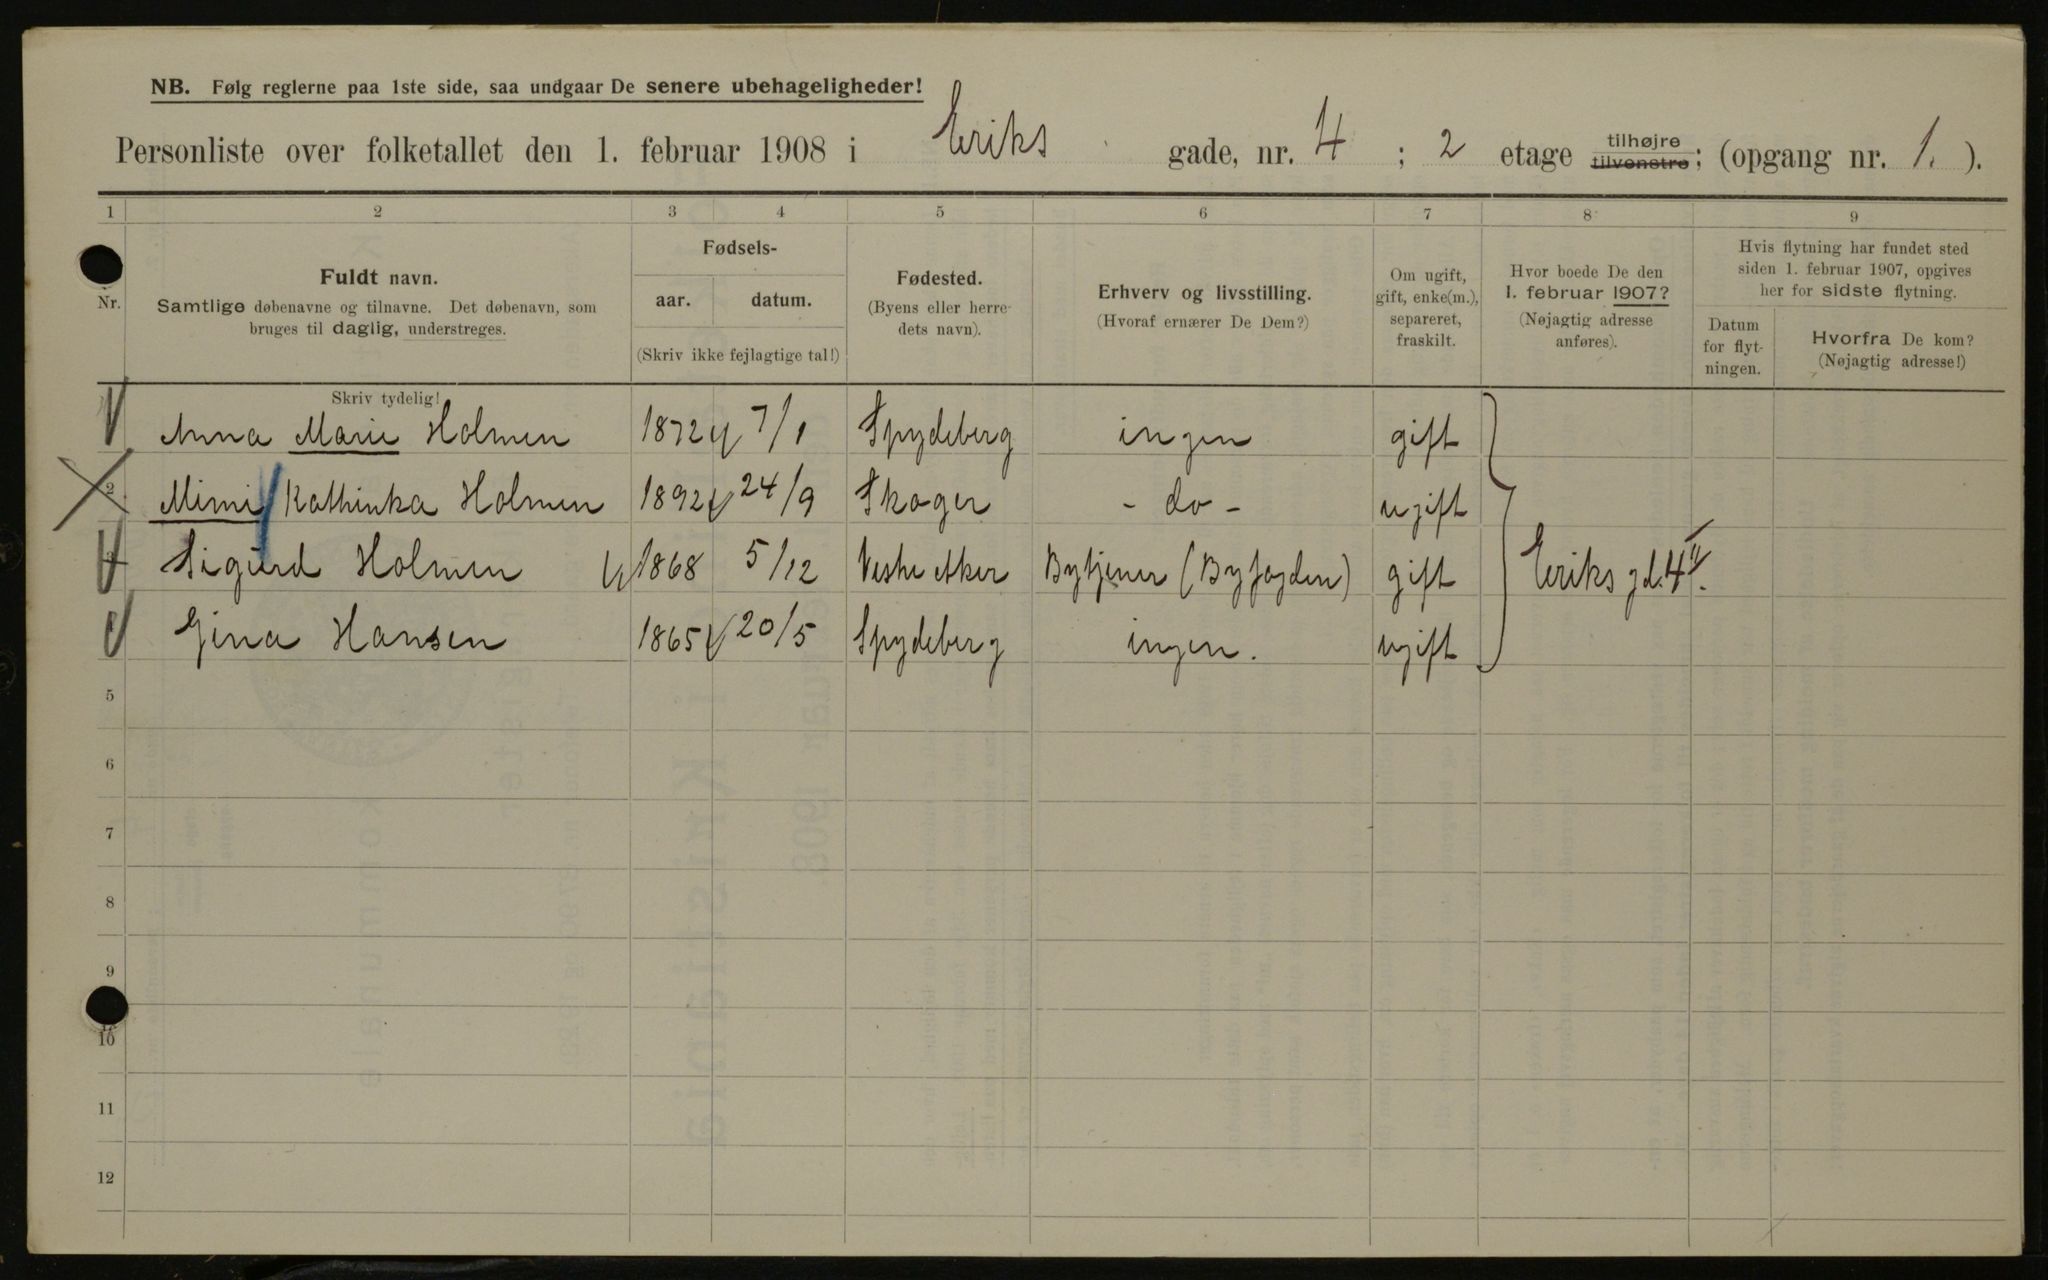 NB. Følg reglerne paa 1ste side, saa undgaar De senere ubehageligheder!
Personliste over folketallet den 1. februar 1908 i Eriks gade, nr. 4 ; 2 etage tilhøjre tilvenstre ; (opgang nr. 1. ).
1 2 3 4 5 6 7 8 9
Nr.
Fuldt navn.
Samtlige døbenavne og tilnavne. Det døbenavn, som
bruges til daglig, understreges.
Skriv tydelig!
Fødsels-
aar. datum.
(Skriv ikke fejlagtige tal!)
Fødested.
(Byens eller herre-
dets navn).
Erhverv og livsstilling.
(Hvoraf ernærer De Dem?)
Om ugift,
gift, enke(m.),
separeret,
fraskilt.
Hvor boede De den
1. februar 1907?
(Nøjagtig adresse
anføres).
Hvis flytning har fundet sted
siden 1. februar 1907, opgives
her for sidste flytning.
Datum
for flyt-
ningen.
Hvorfra De kom?
(Nøjagtig adresse!)
Anna Marie Holmen 1872 7/1 Spydeberg ingen gift
2 Mimi Kathinka Holmen 1892 24/9 Skoger - do - ugift
3 Sigurd Holmen 1868 5/12 Vestre Aker Bytjener (Byfogden) gift Eriks gd. 4 II.
Gina Hansen 1865 20/5 Spydeberg ingen. ugift
5
6
7
8
9
10
11
12